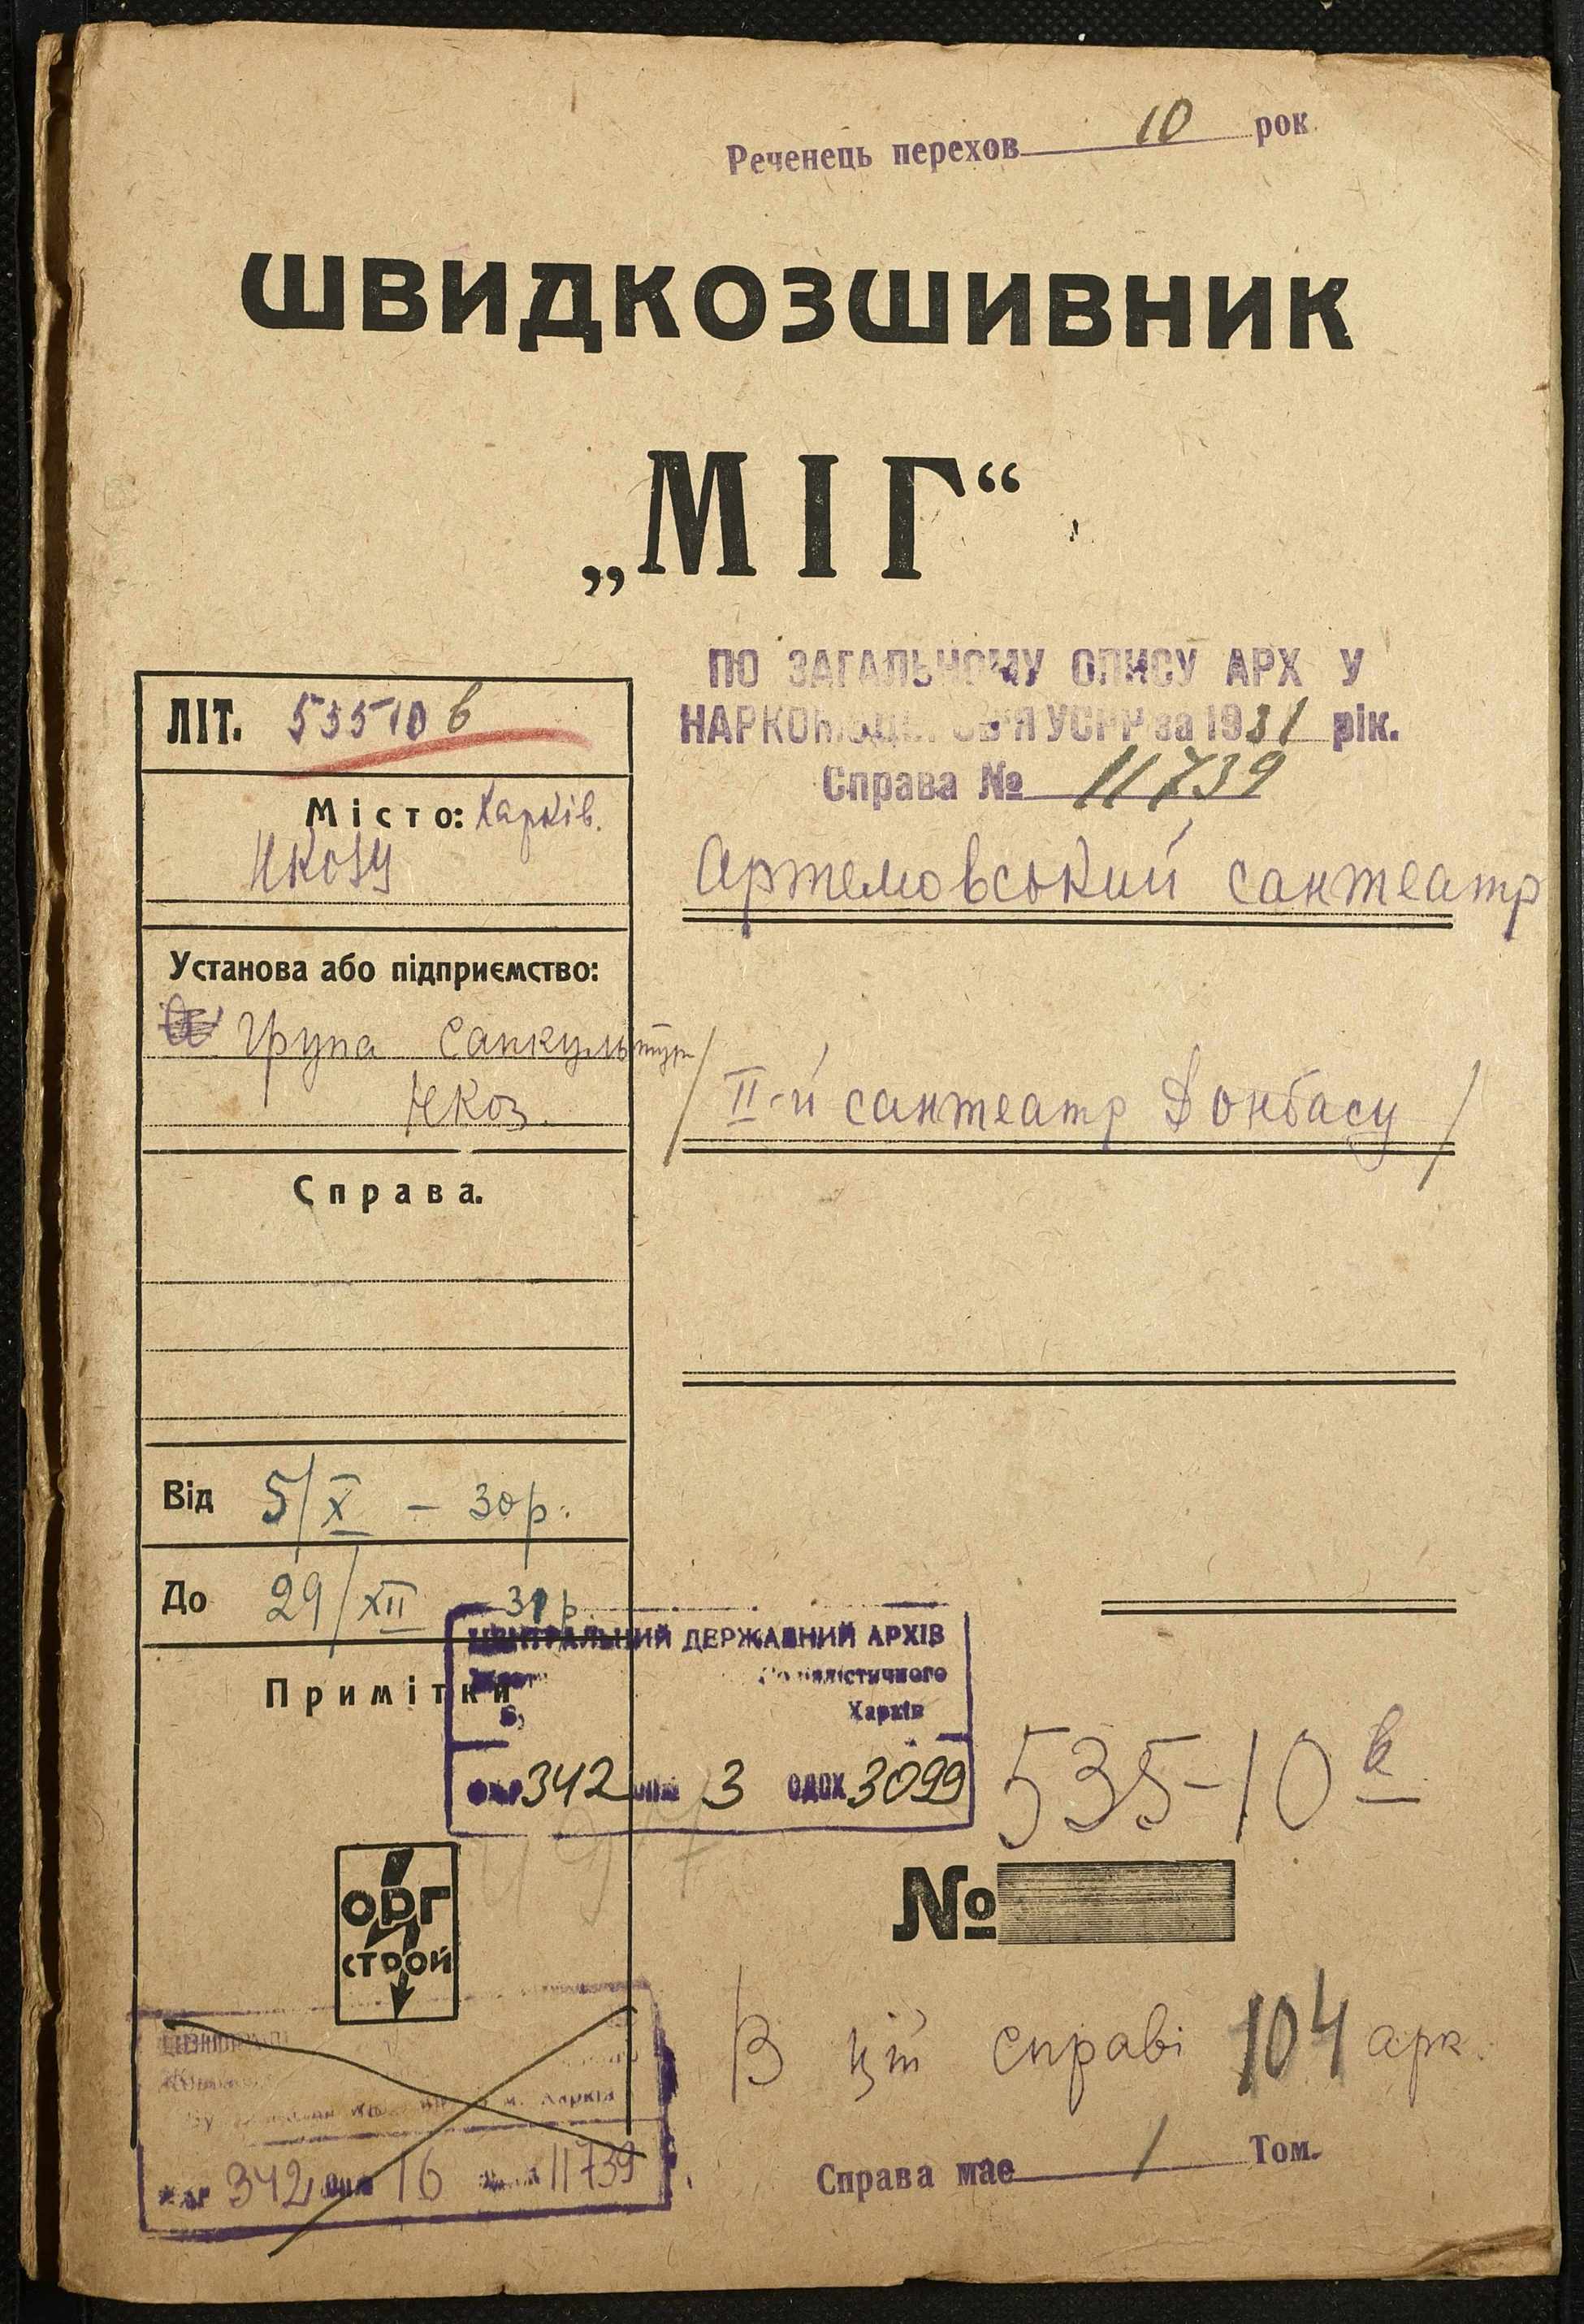 Реченець перехов 10 рок
ШВИДКОЗШИВНИК
„МІГ“
ПО ЗАГАЛЬНОМУ ОПИСУ АРХ У
УСРР за 1931 рік.
Справа № 11739
ЛІТ. 53510 в
Місто: Харків.
НКОЗУ
Артемовський сантеатр
Установа або підприємство:
Група Санкультур
НКОЗ.
/ ІІ-й сантеатр Донбасу /
Справа.
Від 5/X – 30р.
До 29/XII – 31р.
ЦЕНТРАЛЬНИЙ ДЕРЖАВНИЙ АРХІВ
Соціалістичного
Харків
342 3 ОДОХ 3099
Примітки
535-10 в
ОРГ
СТРОЙ
№
В цій справі 104 арк.
м. Харків
342 16 11739
Справа має 1 Том.